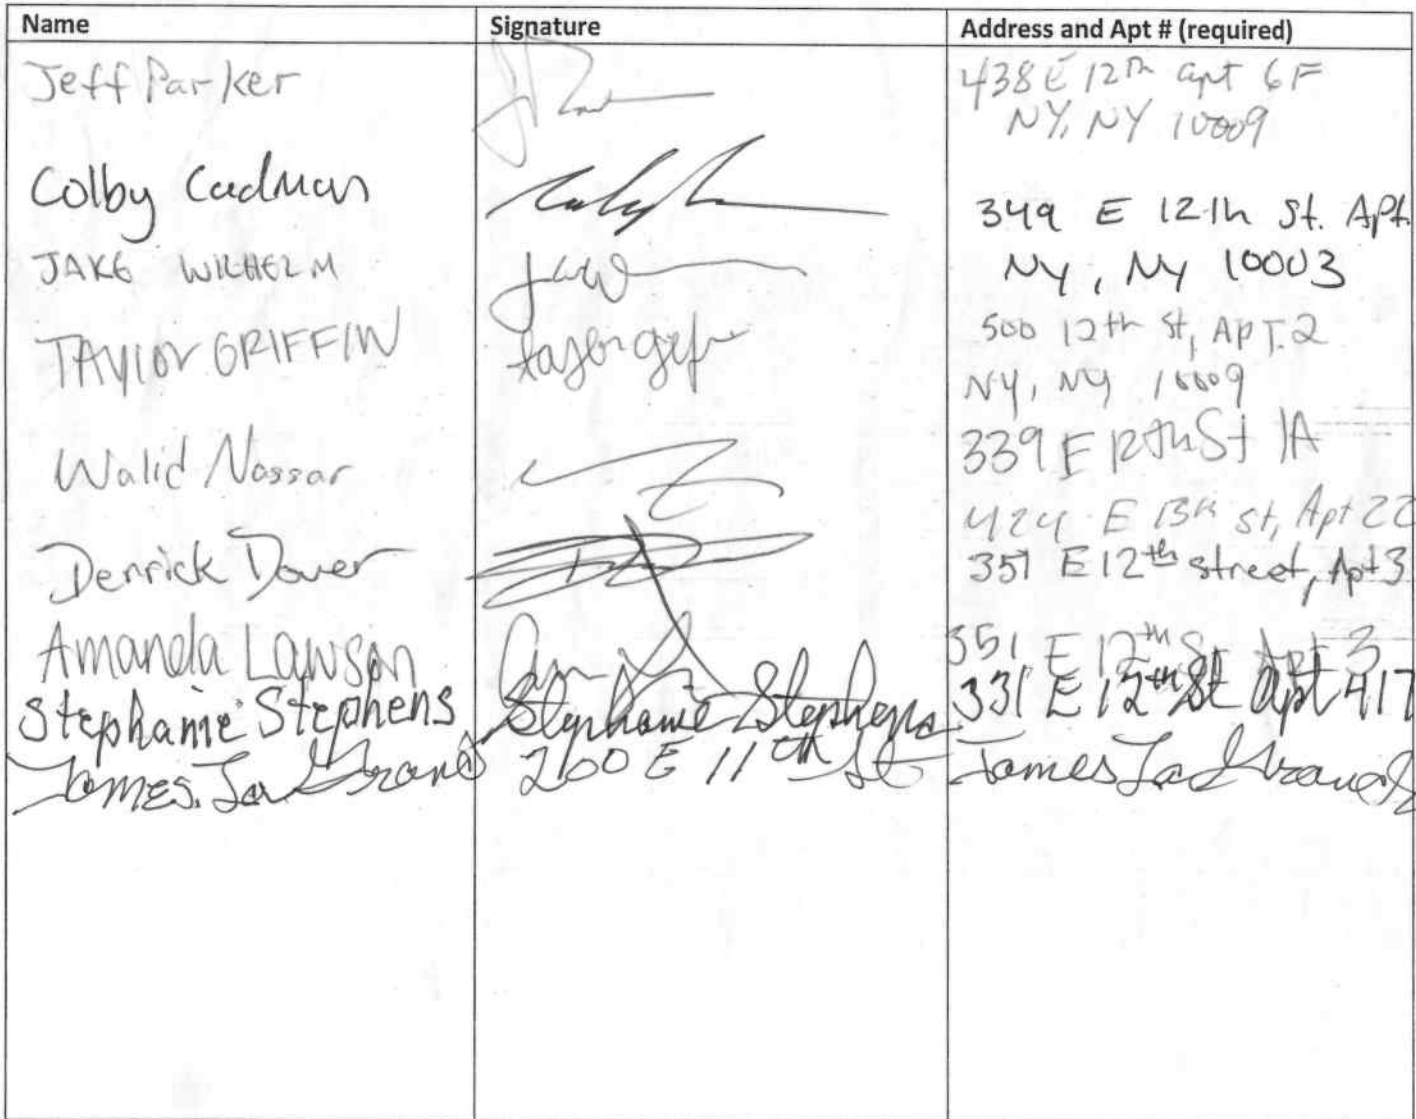 Name Signature Address and Apt # (required)
Jeff Parker 438 E 12th apt 6F
NY, NY 10009
Colby Cadman 349 E 12th St. Apt.
JAKE WILHELM NY, NY 10003
TAYLOR GRIFFIN 500 12th st, APT. 2
NY, NY 10009
Walid Nassar 339 E 12th St 1A
424 E 13th st, Apt 22
Derrick Dover 351 E 12th street, Apt 3
Amanda Lawson 351 E 12th St Apt 3
Stephanie Stephens Stephanie Stephens 331 E 12th St apt 417
James 200 E 11th St James